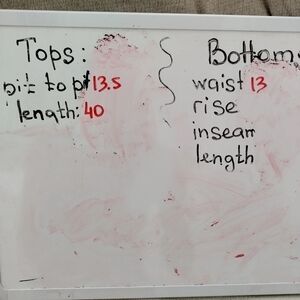 Tops:
pit to pt 13.5
length: 40
Bottom
waist 13
rise
inseam
length